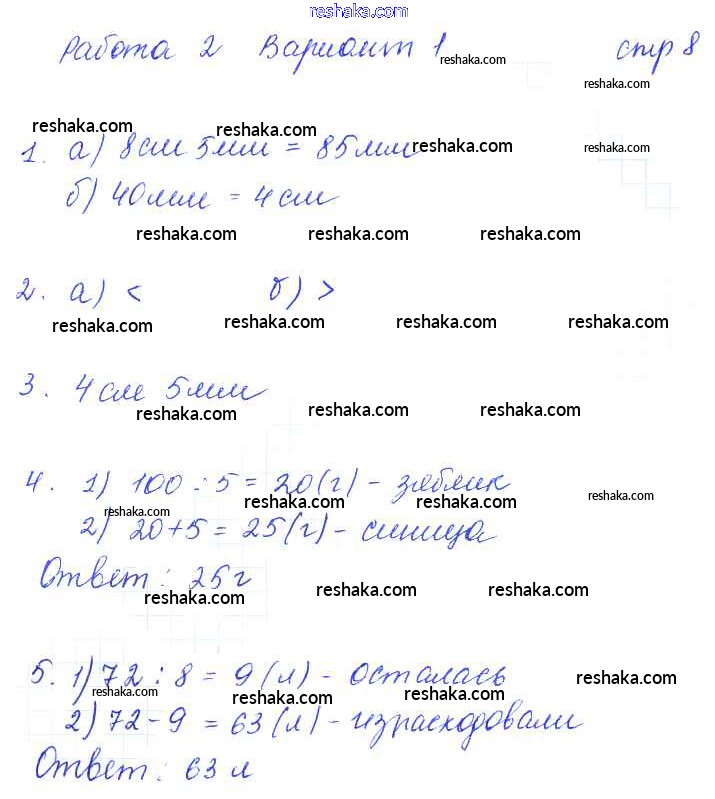 reshaka.com
Работа 2 Вариант 1 стр 8
reshaka.com
reshaka.com
reshaka.com reshaka.com
1. а) 8см 5мм = 85мм
reshaka.com reshaka.com
б) 40мм = 4см
reshaka.com reshaka.com reshaka.com
2. а) < б) >
reshaka.com reshaka.com reshaka.com reshaka.com
3. 4см 5мм
reshaka.com reshaka.com reshaka.com
4. 1) 100 : 5 = 20(г) - зяблик
reshaka.com reshaka.com reshaka.com reshaka.com
2) 20+5 = 25(г) - синица
Ответ: 25г
reshaka.com reshaka.com reshaka.com
5. 1) 72 : 8 = 9(л) - осталась
reshaka.com reshaka.com reshaka.com reshaka.com
2) 72-9 = 63(л) - израсходовали
Ответ: 63 л